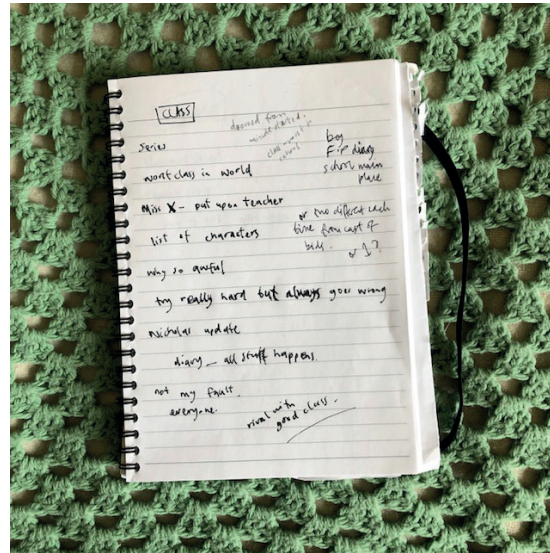 CLASS
doomed from
minute started.
class against
school
series
boy
F.P diary
school main
place
worst class in world
Miss X - put upon teacher
or two different each
time from cast of
kids.
or 1?
list of characters
why so awful
try really hard but always goes wrong
nicholas update
diary - all stuff happens.
not my fault.
everyone.
rival with
good class.